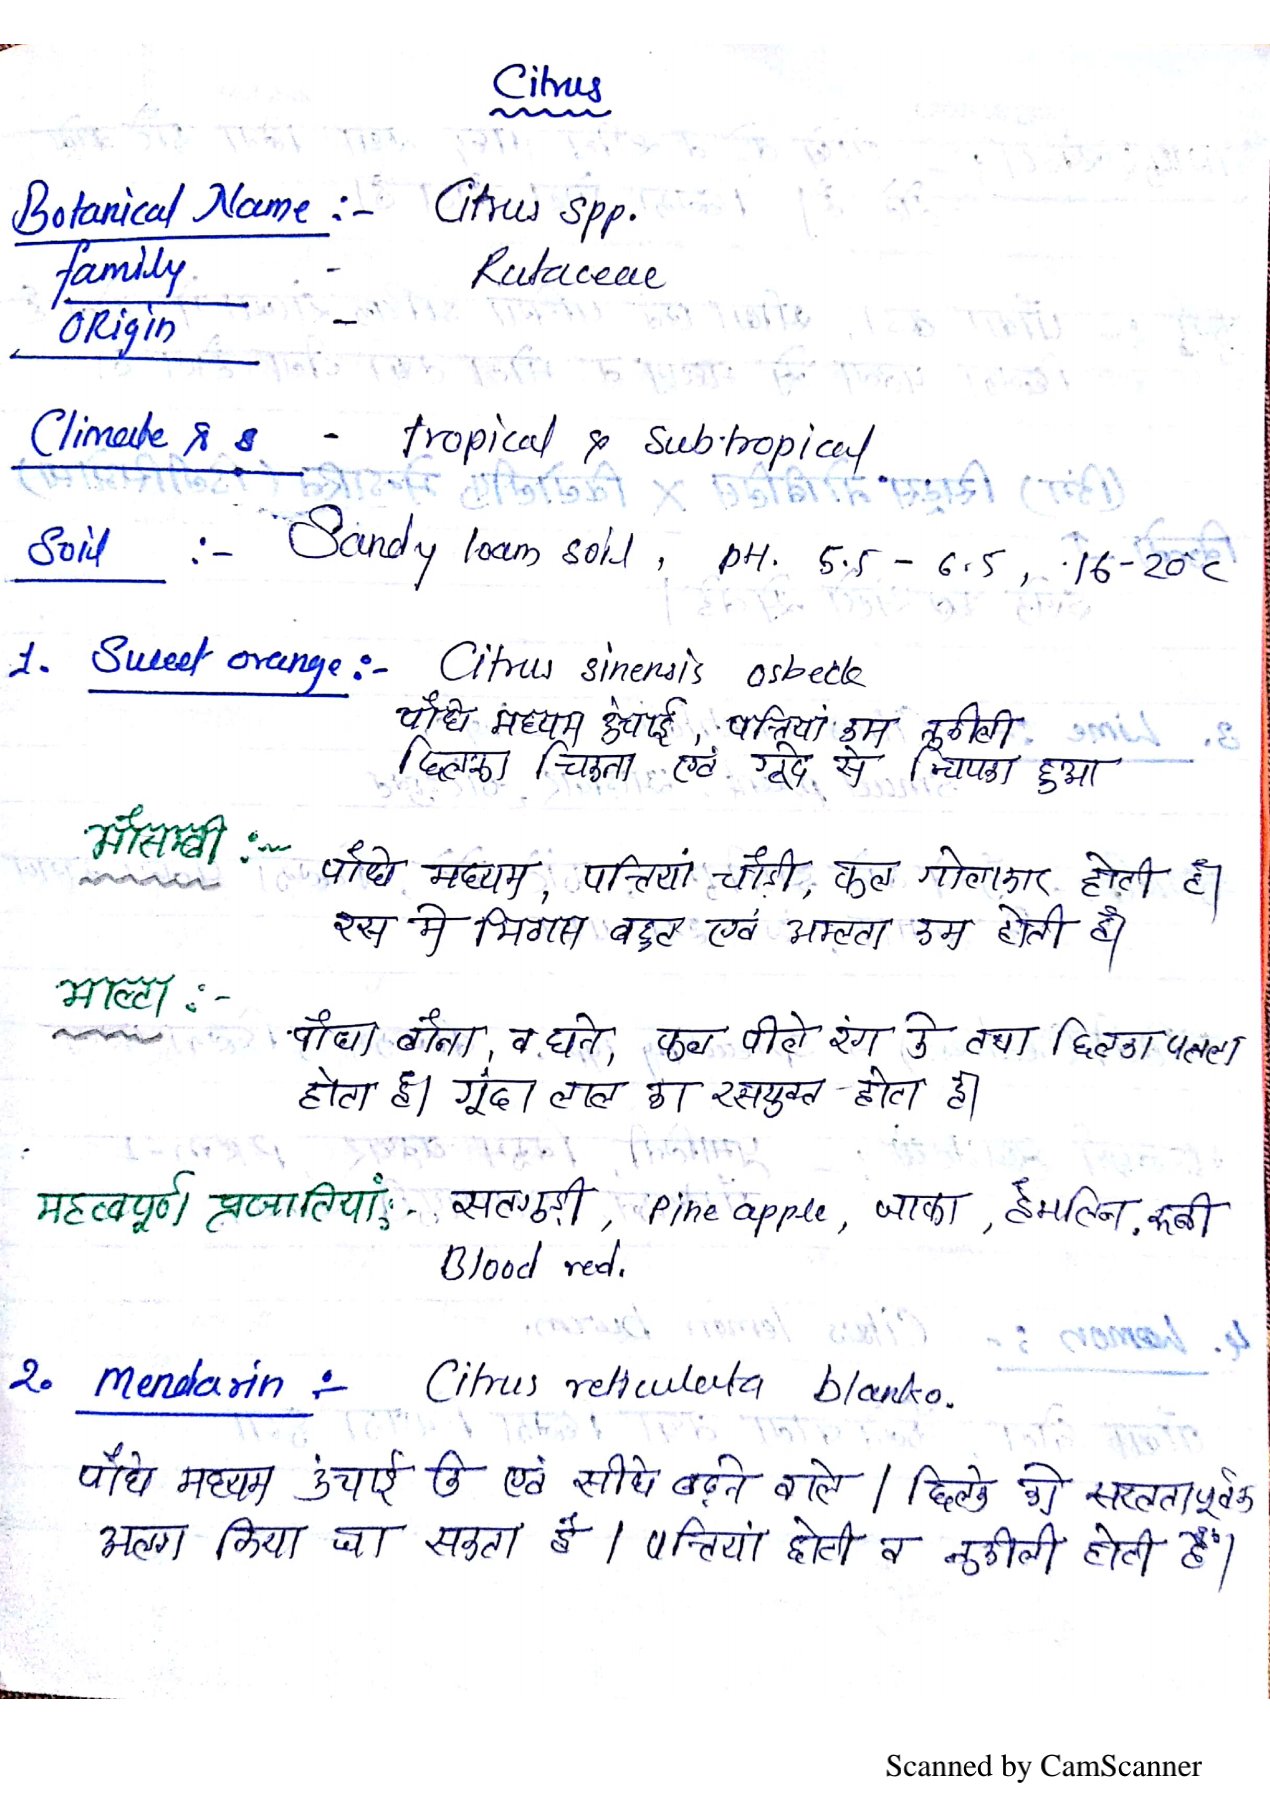 Citrus
Botanical Name :- Citrus spp.
family - Rutaceae
ORigin -
Climate - tropical & subtropical
Soil :- Sandy loam soil, pH. 5.5 - 6.5, 16-20°C
1. Sweet orange :- Citrus sinensis osbeck
पौधे मध्यम उंचाई, पत्तियां कम नुकीली
छिलका चिकना एवं गूदे से चिपका हुआ
मौसम्बी :-
पौधे मध्यम, पत्तियां चौड़ी, फल गोलाकार होती है।
रस में मिठास बहुत एवं अम्लता कम होती है।
माल्टा :-
पौधा बौना, व घने, फल पीले रंग के तथा छिलका पतला
होता है। गूंदा लाल का रसयुक्त होता है।
महत्वपूर्ण प्रजातियां :- सतगुड़ी, Pine apple, जाफा, हैमलिन, रूबी
Blood red.
2. Mendarin :- Citrus reticulata blanko.
पौधे मध्यम उंचाई के एवं सीधे बढ़ने वाले। छिलके को सरलतापूर्वक
अलग किया जा सकता है। पत्तियां छोटी व नुकीली होती है।
Scanned by CamScanner